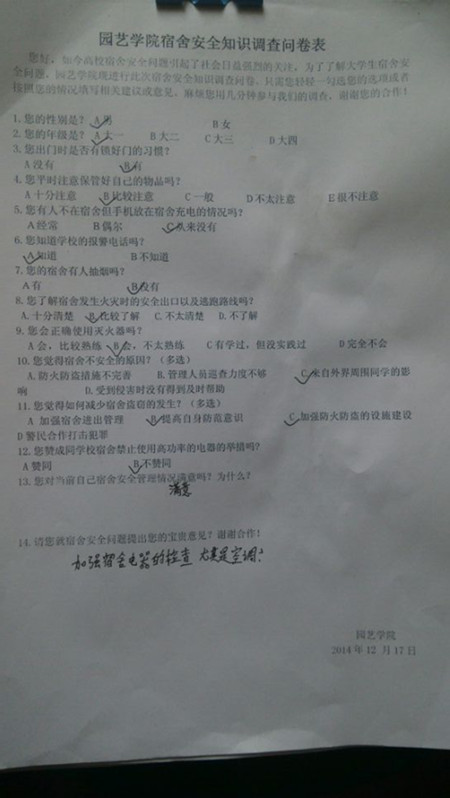 园艺学院宿舍安全知识调查问卷表
您好，如今高校宿舍安全问题引起了社会日益强烈的关注，为了了解大学生宿舍安
全问题，园艺学院现进行此次宿舍安全知识调查问卷，只需您轻轻一勾选您的选项或者
按照您的情况填写相关建议或意见，麻烦您用几分钟参与我们的调查，谢谢您的合作！
1.您的性别是？ A男 B女
2.您的年级是？ A大一 B大二 C大三 D大四
3.您出门时是否有锁好门的习惯？
A没有 B有
4.您平时注意保管好自己的物品吗？
A十分注意 B比较注意 C一般 D不太注意 E很不注意
5.您有人不在宿舍但手机放在宿舍充电的情况吗？
A经常 B偶尔 C从来没有
6.您知道学校的报警电话吗？
A知道 B不知道
7.您的宿舍有人抽烟吗？
A有 B没有
8.您了解宿舍发生火灾时的安全出口以及逃跑路线吗？
A.十分清楚 B.比较了解 C.不太清楚 D.不了解
9.您会正确使用灭火器吗？
A会，比较熟练 B会，不太熟练 C有学过，但没实践过 D完全不会
10.您觉得宿舍不安全的原因？（多选）
A.防火防盗措施不完善 B.管理人员巡查力度不够 C.来自外界周围同学的影
响 D.受到侵害时没有得到及时帮助
11.您觉得如何减少宿舍盗窃的发生？（多选）
A 加强宿舍进出管理 B提高自身防范意识 C加强防火防盗的设施建设
D警民合作打击犯罪
12.您赞成同学校宿舍禁止使用高功率的电器的举措吗？
A赞同 B不赞同
13.您对当前自己宿舍安全管理情况满意吗？为什么？
满意
14.请您就宿舍安全问题提出您的宝贵意见？谢谢合作！
加强宿舍电器的检查 尤其是空调！
园艺学院
2014年12月17日